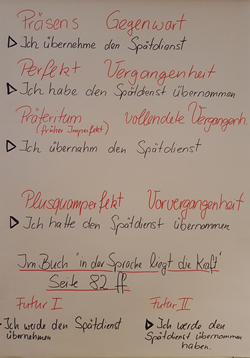 Präsens Gegenwart
Ich übernehme den Spätdienst
Perfekt Vergangenheit
Ich habe den Spätdienst übernommen
Präteritum vollendete Vergangenh.
(früher Imperfekt)
Ich übernahm den Spätdienst
Plusquamperfekt Vorvergangenheit
Ich hatte den Spätdienst übernommen
Im Buch "in der Sprache liegt die Kraft"
Seite 82 ff
Futur I
Ich werde den Spätdienst
übernehmen
Futur II
Ich werde den
Spätdienst übernommen
haben.